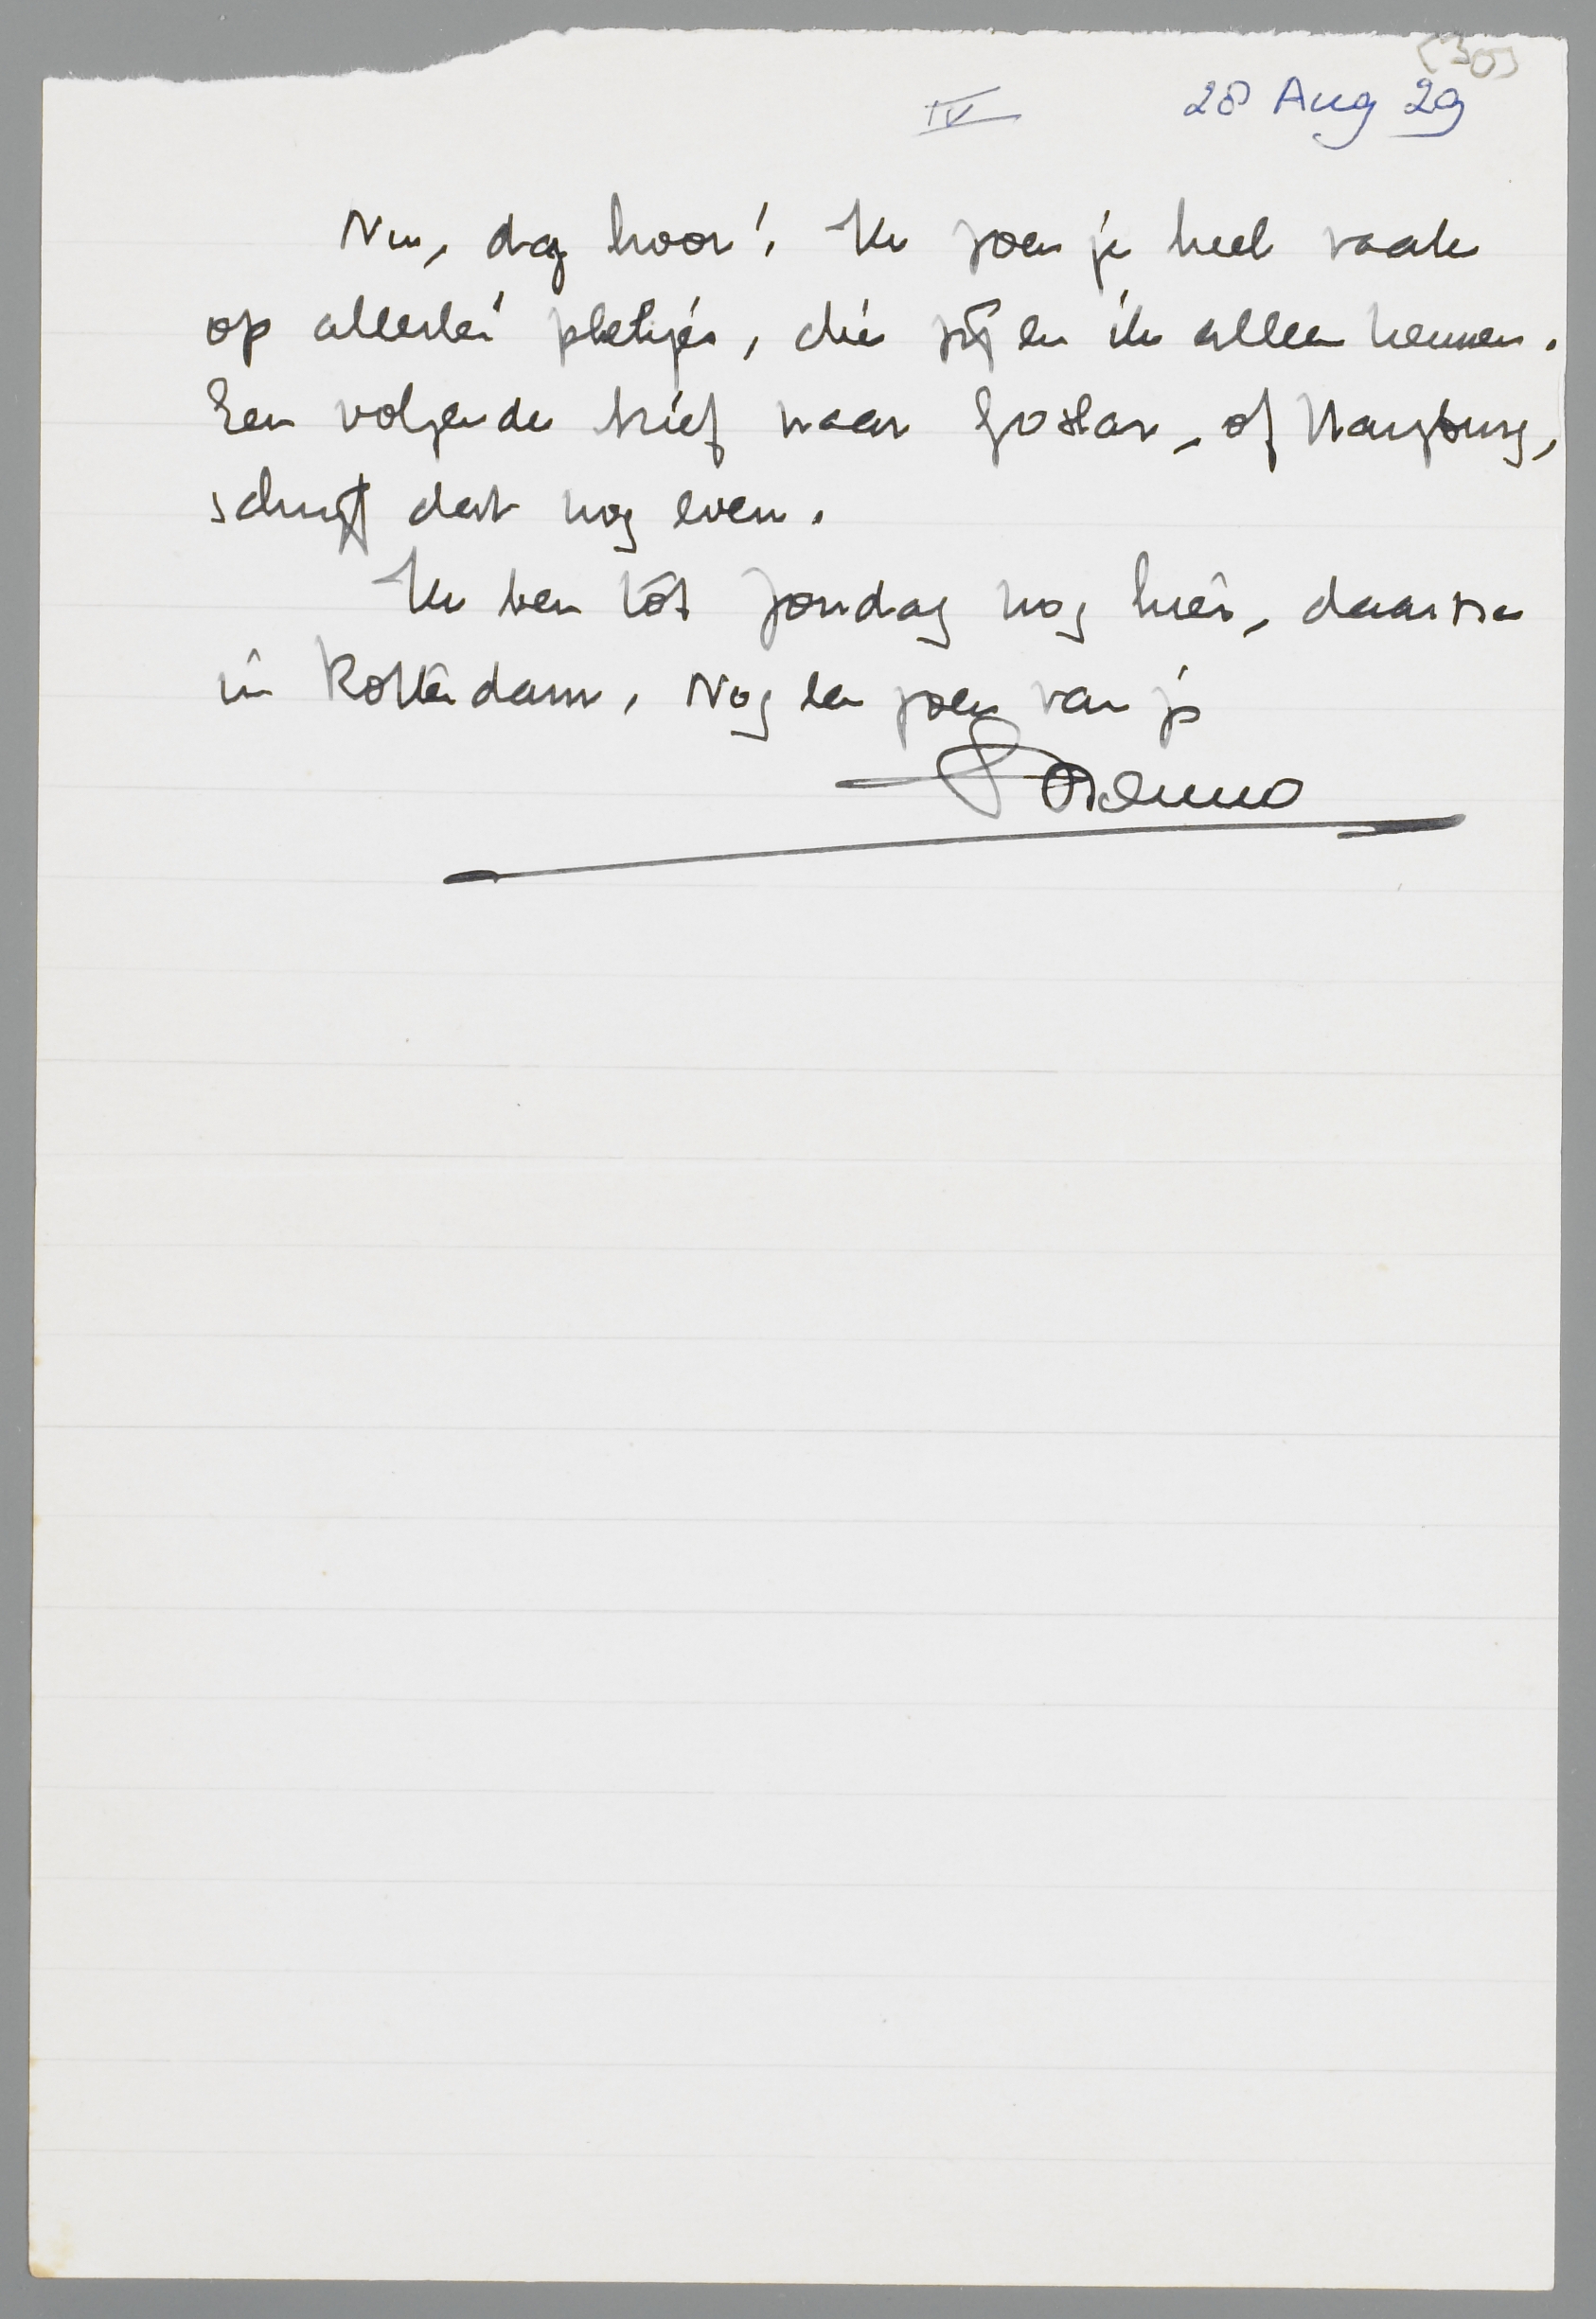 (30)
IV 28 Aug 29
Nu, dag hoor! Ik zoen je heel vaak
op allerlei plekjes, die jij en ik alleen kennen.
Een volgende brief naar Goslar, of Harzburg,
schrijf dat nog even.
Ik ben tot zondag nog hier, daarna
in Rotterdam. Nog een zoen van je